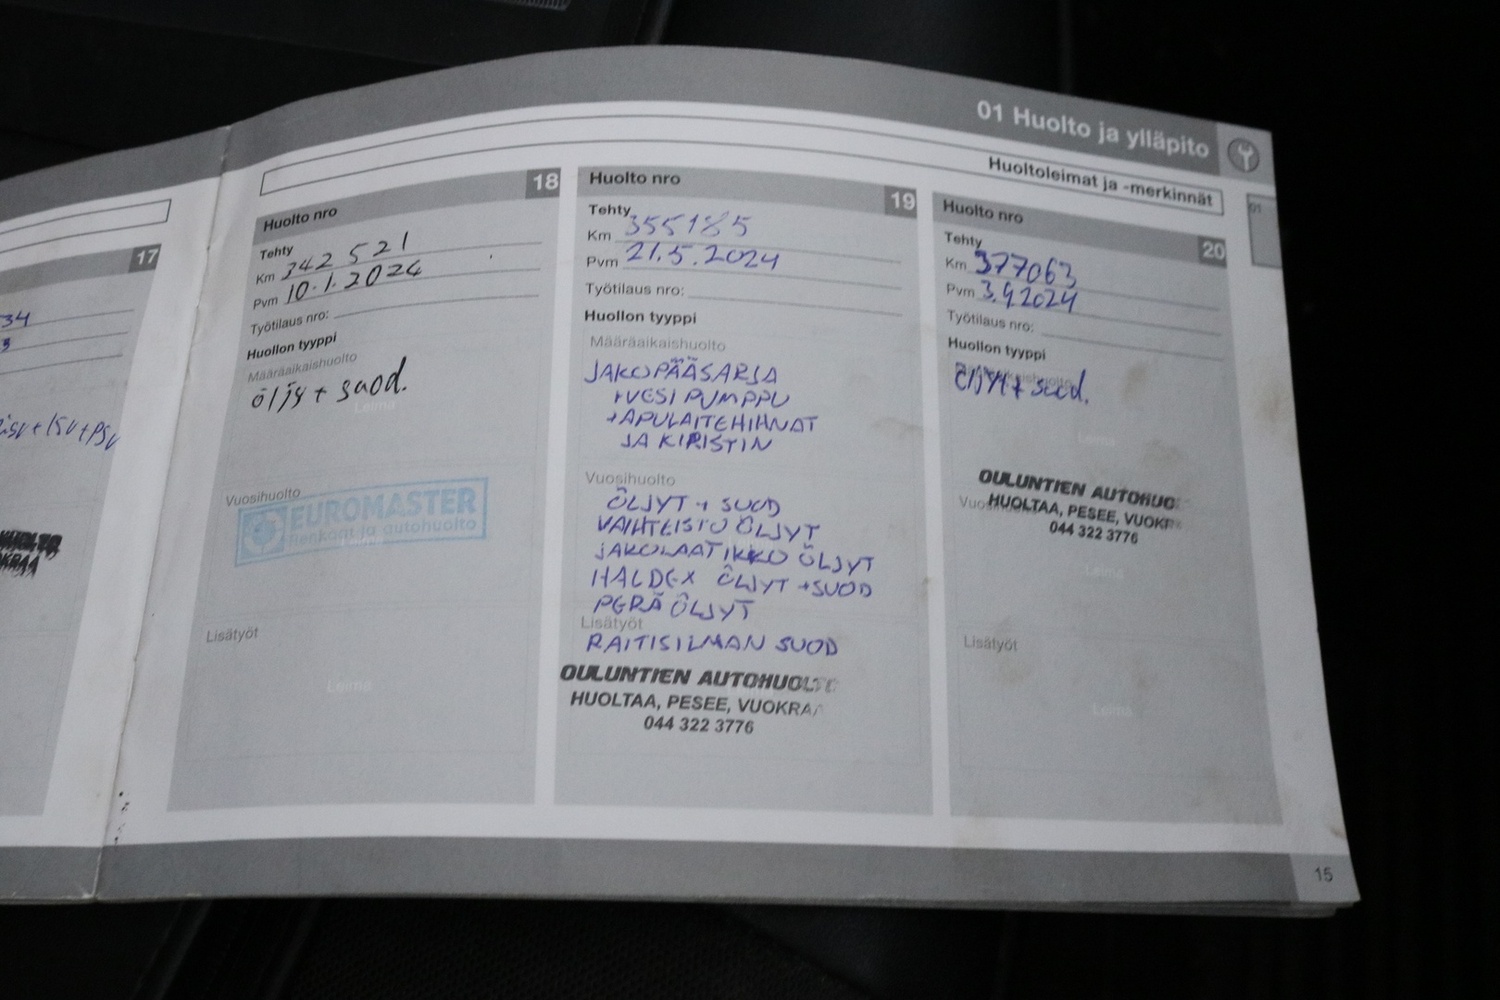 01 Huolto ja ylläpito
Huoltoleimat ja -merkinnät
01
17
34
3
+ISV+PSV
18
Huolto nro
Tehty
Km 342 521
Pvm 10.1.2024
Työtilaus nro:
Huollon tyyppi
Määräaikaishuolto
öljy + suod.
Leima
Vuosihuolto
EUROMASTER
Renkaat ja autohuolto
Lisätyöt
Leima
Huolto nro
19
Tehty
Km 355185
Pvm 21.5.2024
Työtilaus nro:
Huollon tyyppi
Määräaikaishuolto
JAKOPÄÄSARJA
+VESI PUMPPU
+APULAITEHIHNAT
JA KIRISTIN
Vuosihuolto
ÖLJYT + SUOD
VAIHTEISTO ÖLJYT
JAKOLAATIKKO ÖLJYT
HALDEX ÖLJYT +SUOD
PERÄ ÖLJYT
Lisätyöt
RAITISILMAN SUOD
OULUNTIEN AUTOHUOLTO
HUOLTAA, PESEE, VUOKRAA
044 322 3776
Huolto nro
20
Tehty
Km 377063
Pvm 3.9.2024
Työtilaus nro:
Huollon tyyppi
Öljyt + suod.
Leima
OULUNTIEN AUTOHUO
HUOLTAA, PESEE, VUOKR
044 322 3776
Leima
Lisätyöt
Leima
15